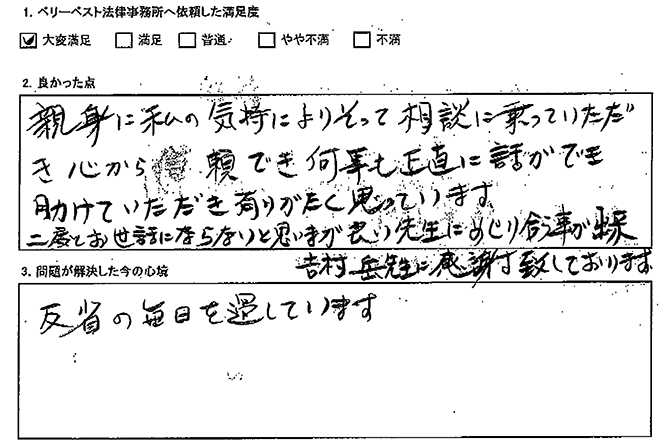 1. ベリーベスト法律事務所へ依頼した満足度
☑ 大変満足 □ 満足 □ 普通 □ やや不満 □ 不満
2. 良かった点
親身に私の気持によりそって相談に乗っていただ
き心から信頼でき何事も正直に話ができ
助けていただき有りがたく思っています
二度とお世話にならないと思いますが良い先生にめぐり合う事が出来
吉村岳先生に感謝す致しております
3. 問題が解決した今の心境
反省の毎日を過しています